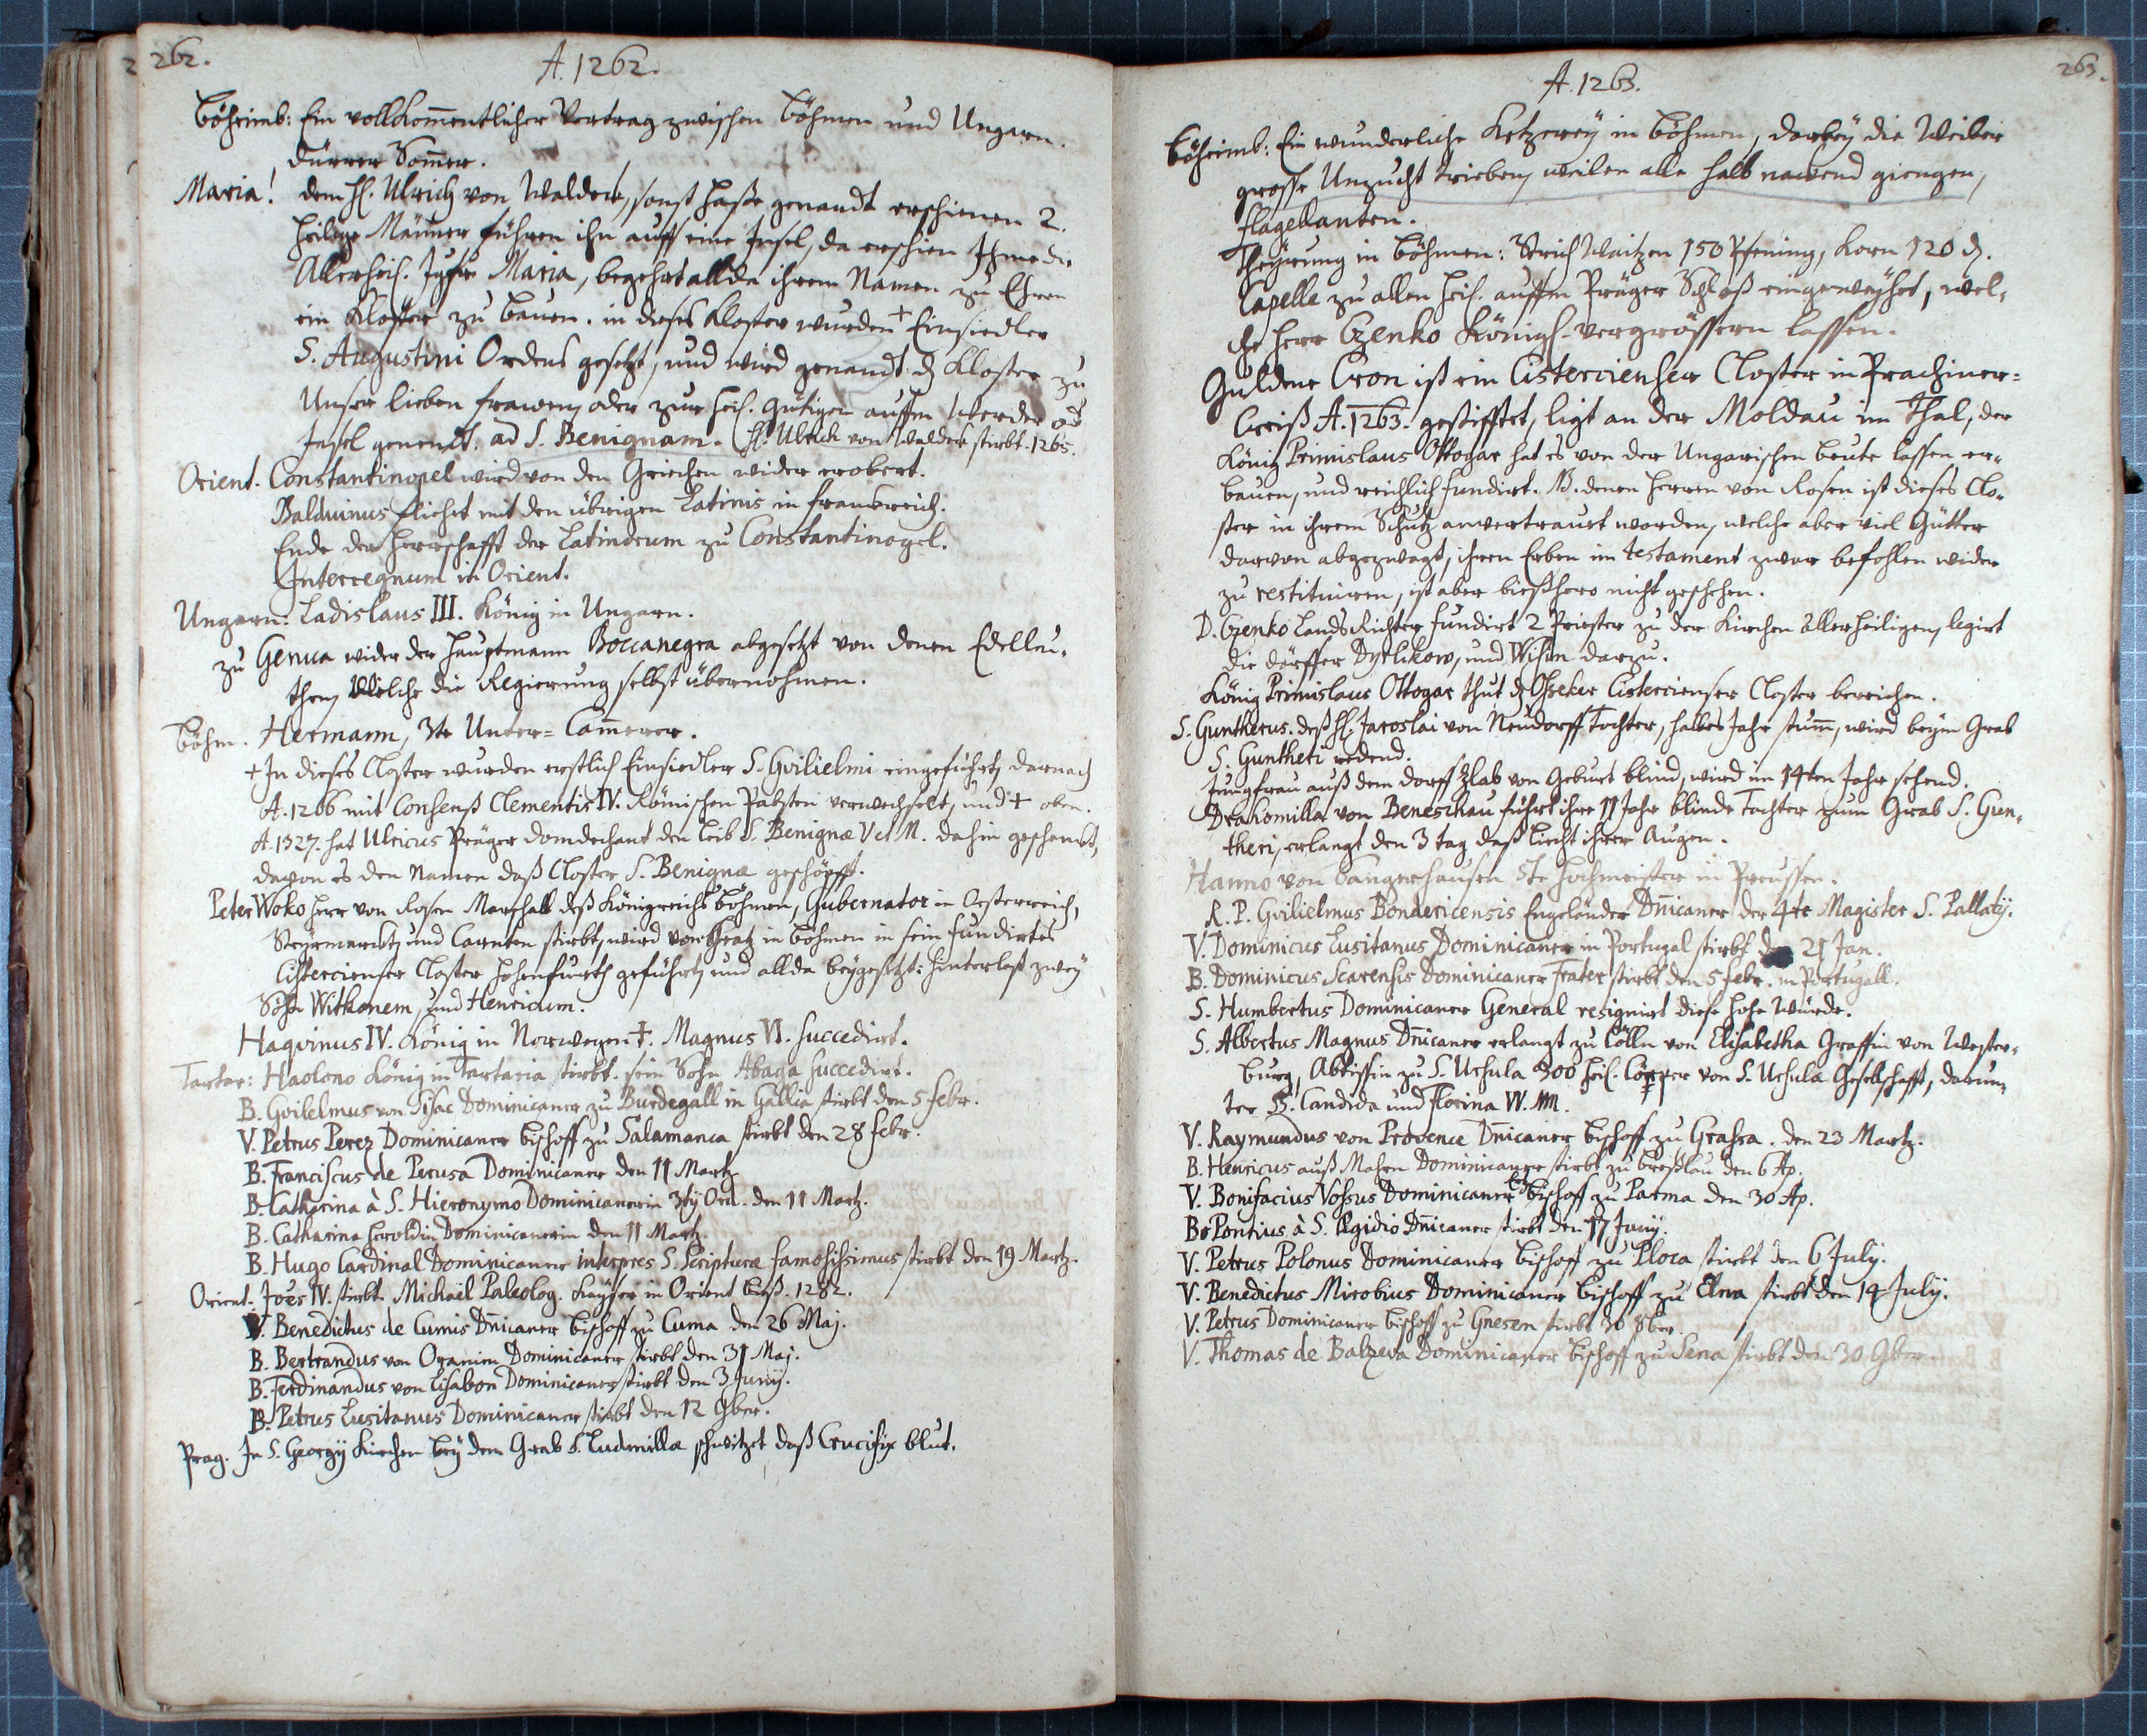 262.
A. 1262.
Böheimb: Ein vollkom̅entlicher Vertrag zwischen Böhmen und Ungarn.
dürrer Som̅er.
Maria! dem H. Ulrich von Waldeck, sonst Haße genandt erschienen 2.
heilige Männer führen ihn auff eine Insel, da erschien Ihme die
Allerheil. Jgfr Maria, begehrt allda ihrem Namen zu Ehren
ein Kloster zu bauen. in dieses Kloster wurden + Einsiedler
S. Augustini Ordens gesetzt, und wird genandt dz Kloster zu
Unser lieben frawen, oder zur heil. Gütigen auffm Werder od
Insel genendt. ad S. Benignam. H. Ulrich von Waldeck stirbt. 1265.
Orient. Constantinopel wird von den Griechen wider erobert.
Balduinus fliehet mit den übrigen Latinis in franckreich.
Ende der Herrschafft der Latinorum zu Constantinopel.
Interregnum in Orient.
Ungarn: Ladislaus III. König in Ungarn.
zu Genua wider der Hauptmann Boccanegra abgesetzt von denen Edelleu-
then, Welche die Regierung selbst übernohmen.
Böhm. Hermann, 3te Unter-Cam̅erer.
+ In dieses Closter wurden erstlich Einsiedler S. Gvilielmi eingeführt, darnach
A. 1266 mit Consenß Clementis IV. Römischen Pabsten verwechselt, und + oben.
A. 1327. hat Ulricus Präger Domdechant den Leib S. Benignæ V et M. dahin geschenckt,
davon es den Namen daß Closter S. Benignæ geschöpfft.
Peter Woko Herr von Rosen Marschall deß Königreichs Böhmen, Gubernator in Oesterreich,
Steyrmarck und Carnten stirbt, wird von Gratz in Böhmen in sein fundirtes
Cistercienser Closter Hohenfurth geführt, und allda beygesetzt: hinterlast zwey
Söhn Witkonem, und Henricum.
Haqvinus IV. König in Norwegen †. Magnus VI. succedirt.
Tartar: Haolono König in Tartaria stirbt. sein Sohn Abaga succedirt.
B. Gvilelmus von Disac Dominicaner zu Burdegall in Gallia stirbt den 5 Febr.
V. Petrus Perez Dominicaner Bischoff zu Salamanca stirbt den 28 Febr.
B. Franciscus de Perusa Dominicaner den 11 Martz
B. Catharina à S. Hieronymo Dominicanerin 3tij Ord. den 11 Martz.
B. Catharina Heroldin Dominicanerin den 11 Martz.
B. Hugo Cardinal Dominicaner interpres S. Scripturæ famosissimus stirbt den 19 Martz.
Orient. Joẽs IV. stirbt. Michaël Paleolog. Kayser in Orient biß. 1282.
V. Benedictus de Cumis Dn̅icaner Bischoff zu Cuma den 26 Maj.
B. Bertrandus von Oranien Dominicaner stirbt den 31 Maj.
B. Ferdinandus von Lisabon Dominicaner stirbt den 3 Junij.
B. Petrus Lusitanus Dominicaner stirbt den 12 9ber.
Prag. In S. Georgij Kirchen bey dem Grab S. Ludmillæ schwitzet daß Crucifix blut.
263.
A. 1263.
Böheimb: Ein wunderliche Ketzerey in Böhmen, darbey die Weiber
grosse Unzucht trieben, weilen alle halb nacend giengen,
flagellanten.
Theyrung in Böhmen: Strich Waitzen 150 Pfening, Korn 120 d.
Capelle zu allen heil. auffm Präger Schloß eingeweyhet, wel-
che Herr Czenko Königl. vergrössern lassen.
Guldene Cron ist ein Cistercienser Closter in Prachiner=
Creiß A. 1263. gestifftet, ligt an der Moldau im Thal, der
König Primislaus Ottogar hat es von der Ungarischen beute lassen er-
bauen, und reichlich fundirt. NB. denen Herren von Rosen ist dieses Clo-
ster in ihrem Schutz anvertrauet worden, welche aber viel Gütter
darvon abgezwagt, ihren Erben im testament zwar befohlen wider
zu restituiren, ist aber bießhero nicht geschehen.
D. Czenko Lands Richter fundirt 2 Priester zu der Kirchen Allerheiligen, legirt
die dörffer Dyrlikow, und Wihsin darzu.
König Primislaus Ottogar thut dz Osseker Cistercienser Closter bereichen.
S. Guntherus. deß H. Jaroslai von Neudorff Tochter, halbes Jahr stum̅, wird beym Grab
S. Guntheri redend.
Jungfrau auß dem dorff Zlab von Geburt blind, wird im 14ten Jahr sehend.
Drahomilla von Beneschau führt ihre 11 Jahr blinde Tochter zum Grab S. Gun-
theri, erlangt den 3 tag daß liecht ihrer Augen.
Hanno von Sangerhausen 8te Hochmeister in Preussen.
R. P. Gvilielmus Bondericensis Engeländer Dn̅icaner der 4te Magister S. Pallatij.
V. Dominicus Lusitanus Dominicaner in Portugal stirbt den 21 Jan.
B. Dominicus Scarensis Dominicaner Frater stirbt den 5 Febr. in Portugall.
S. Humbertus Dominicaner General resignirt diese hohe Würde.
S. Albertus Magnus Dn̅icaner erlangt zu Cölln von Elisabetha Graffin von Wester-
burg, Abtissin zu S. Ursula 300 heil. Cörper von S. Ursulæ Gesellschafft, darun-
ter S. Candida und Florina VV. MM.
V. Raymundus von Provence Dn̅icaner Bischoff zu Grassa. den 23 Martz.
B. Henricus auß Mahren Dominicaner stirbt zu Breßlau den 6 Ap.
V. Bonifacius Vossus Dominicaner Bischoff zu Parma den 30 Ap.
B. Pontius à S. Ægidio Dn̅icaner stirbt den 17 Junij.
V. Petrus Polonus Dominicaner Bischoff zu Ploca stirbt den 6 July.
V. Benedictus Mirobius Dominicaner Bischoff zu Elna stirbt den 14 Julij.
V. Petrus Dominicaner Bischoff zu Gnesen stirbt 30 8ber.
V. Thomas de Balzeva Dominicaner Bischoff zu Sena stirbt den 30 9ber.